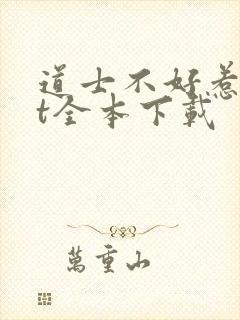 道士不好惹
t全本下载
萬重山